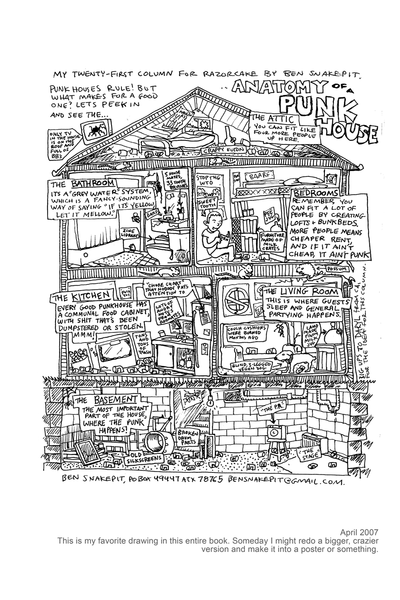 MY TWENTY-FIRST COLUMN FOR RAZORCAKE BY BEN SNAKEPIT.
PUNK HOUSES RULE! BUT
WHAT MAKES FOR A GOOD
ONE? LETS PEEK IN
AND SEE THE...
..ANATOMY OF A
PUNK
HOUSE
THE ATTIC
YOU CAN FIT LIKE
FOUR MORE PEOPLE
UP HERE.
ONLY TV
IN THE HOUSE
THE BATHROOM
ITS A "GREY WATER" SYSTEM,
WHICH IS A FANCY-SOUNDING
WAY OF SAYING "IF ITS YELLOW
LET IT MELLOW."
BEDROOMS
REMEMBER YOU
CAN FIT A LOT OF
PEOPLE BY CREATING
LOFTS & BUNKBEDS.
MORE PEOPLE MEANS
CHEAPER RENT,
AND IF IT AIN'T
CHEAP, IT AIN'T PUNK
THE KITCHEN
EVERY GOOD PUNKHOUSE HAS
A COMMUNAL FOOD CABINET,
WITH SHIT THAT'S BEEN
DUMPSTERED OR STOLEN.
THE LIVING ROOM
THIS IS WHERE GUESTS
SLEEP AND GENERAL
PARTYING HAPPENS.
COUCH CUSHIONS
WERE BURNED
MONTHS AGO
THE BASEMENT
THE MOST IMPORTANT
PART OF THE HOUSE,
WHERE THE PUNK
HAPPENS!
OLD
SILKSCREENS
BROKEN
DRUM
PARTS
"THE PA"
"THE
STAGE"
BEN SNAKEPIT, PO BOX 49447 ATX 78765 BENSNAKEPIT@GMAIL.COM.
April 2007
This is my favorite drawing in this entire book. Someday I might redo a bigger, crazier
version and make it into a poster or something.